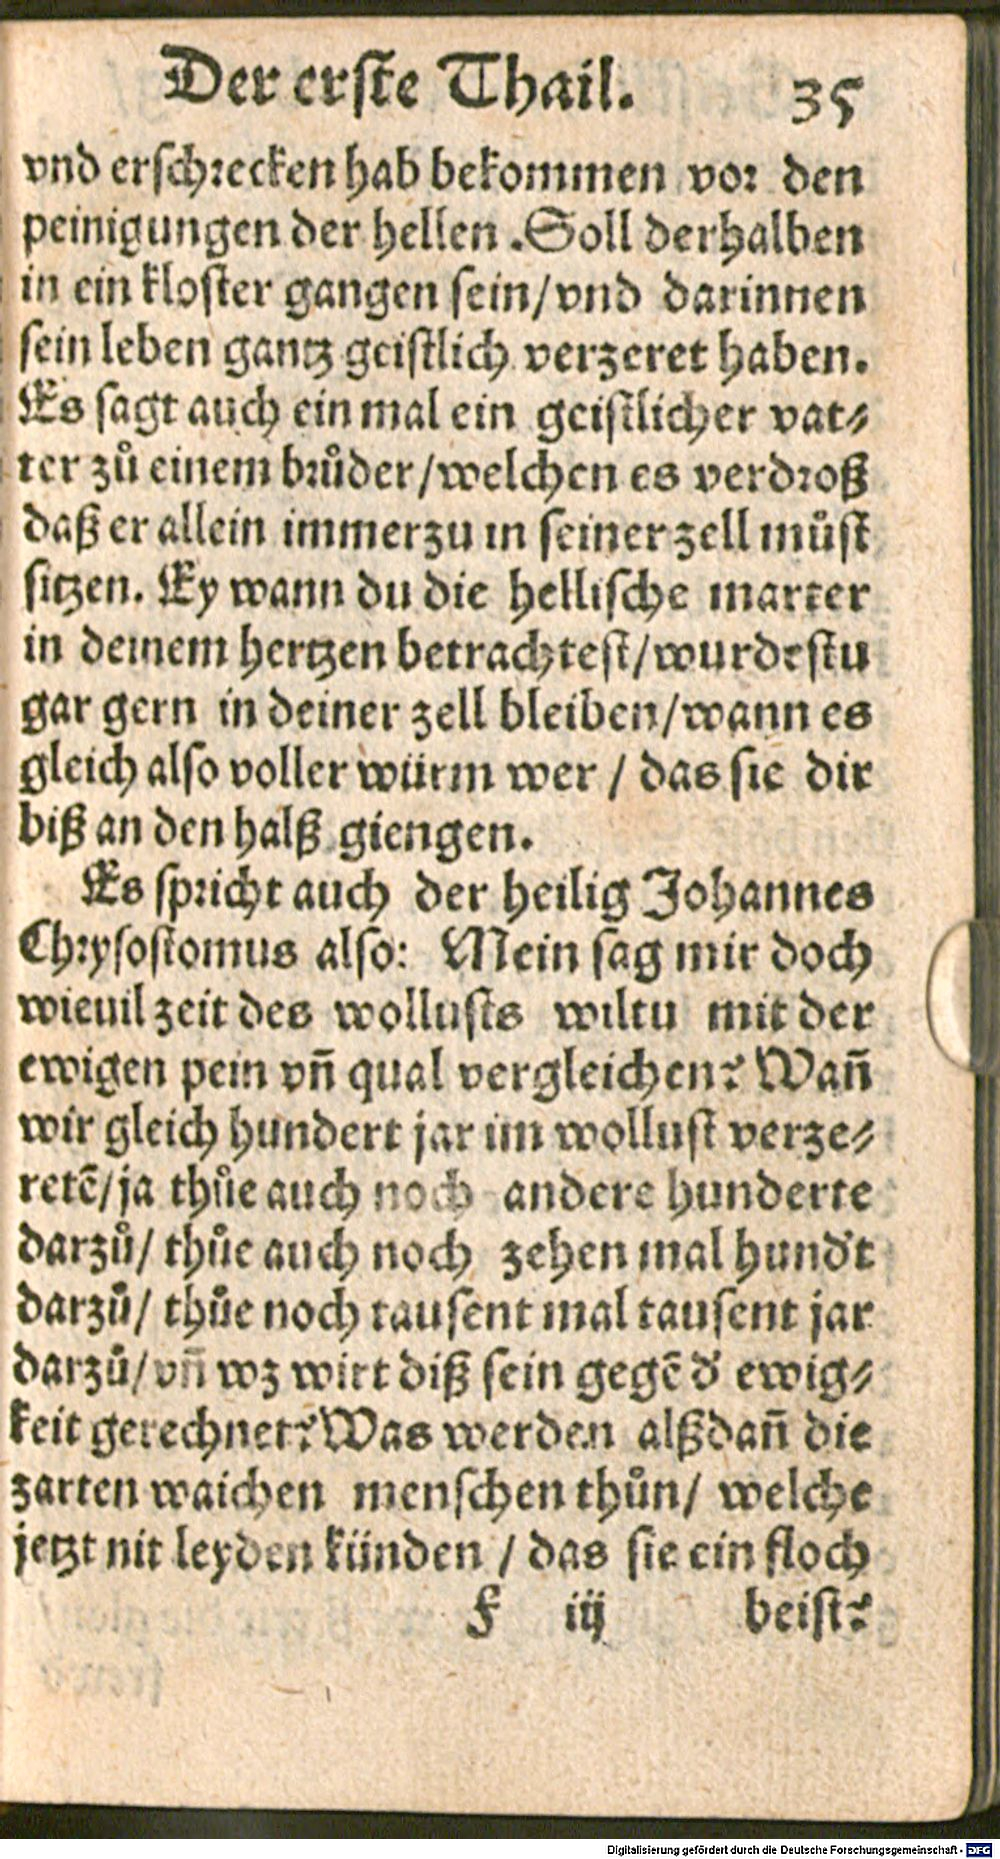 Der erste Thail. 35
vnd erschrecken hab bekommen vor den
peinigungen der hellen .Soll derhalben
in ein kloster gangen sein/vnd darinnen
sein leben gantz geistlich verzeret haben.
Es sagt auch ein mal ein geistlicher vat⸗
ter zů einem brůder/welchen es verdroß
daß er allein immerzu in seiner zell můst
sitzen. Ey wann du die hellische marter
in deinem hertzen betrachtest/wurdestu
gar gern in deiner zell bleiben/wann es
gleich also voller würm wer / das sie dir
biß an den halß giengen.
Es spricht auch der heilig Johannes
Chrysostomus also: Mein sag mir doch
wieuil zeit des wollusts wiltu mit der
ewigen pein vñ qual vergleichen? Wañ
wir gleich hundert jar im wollust verze⸗
retẽ/ja thůe auch noch andere hunderte
darzů/ thůe auch noch zehen mal hund't
darzů/ thůe noch tausent mal tausent jar
darzů/vñ wz wirt diß sein gegẽ d' ewig⸗
keit gerechnet? Was werden alßdañ die
zarten waichen menschen thůn/ welche
jetzt nit leyden künden / das sie ein floch
F iij beist?
Digitalisierung gefördert durch die Deutsche Forschungsgemeinschaft - DFG